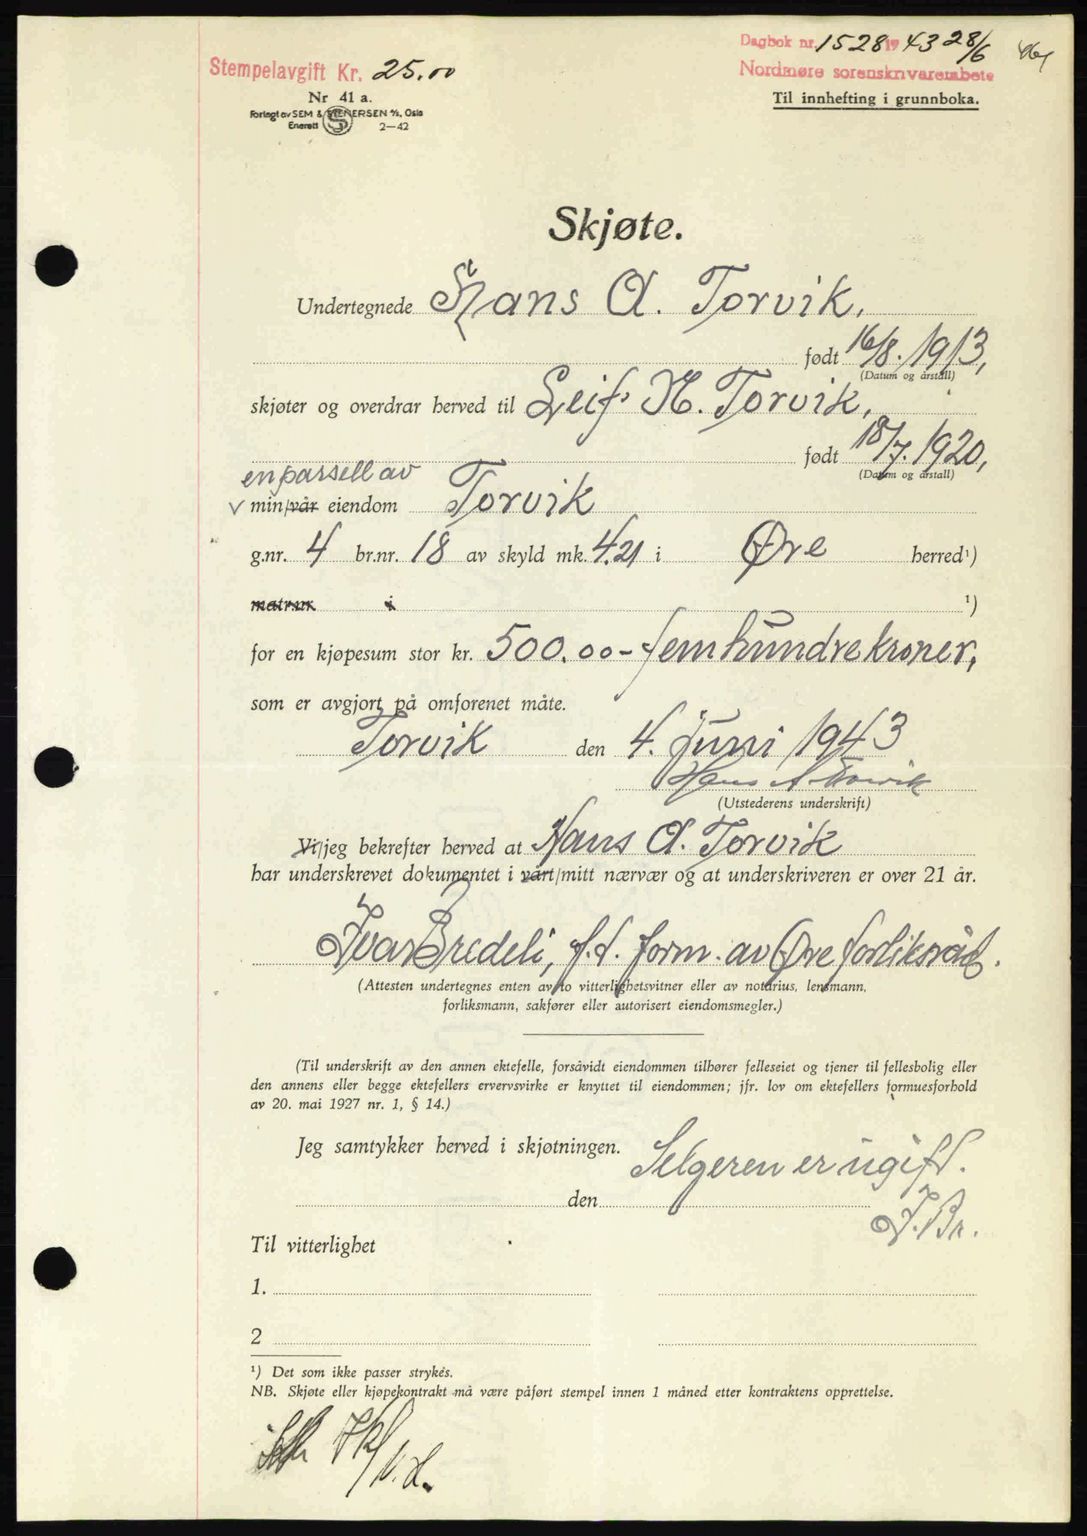 Dagbok nr. 1528 1943 28/6
Stempelavgift Kr. 25.00
Nordmøre sorenskriverembete
Nr 41 a.
Til innhefting i grunnboka.
Forlagt av SEM & STENERSEN A/S, Oslo
Enerett 2—42
Skjøte.
Undertegnede Hans A. Torvik,
født 16/8. 1913,
(Datum og årstall)
skjøter og overdrar herved til Leif H. Torvik,
født 18/7. 1920,
(Datum og årstall)
en parsell av
v min/vår eiendom Torvik
g.nr. 4 br.nr. 18 av skyld mk. 4.21 i Øre herred¹)
matrnr. i ¹)
for en kjøpesum stor kr. 500.00 - femhundre kroner,
som er avgjort på omforenet måte.
Torvik den 4. juni 1943
Hans A. Torvik
(Utstederens underskrift)
Vi/jeg bekrefter herved at Hans A. Torvik
har underskrevet dokumentet i vårt/mitt nærvær og at underskriveren er over 21 år.
Ivar Bredeli, f.t. form. av Øre forliksråd.
(Attesten undertegnes enten av to vitterlighetsvitner eller av notarius, lensmann,
forliksmann, sakfører eller autorisert eiendomsmegler.)
(Til underskrift av den annen ektefelle, forsåvidt eiendommen tilhører felleseiet og tjener til fellesbolig eller
den annens eller begge ektefellers ervervsvirke er knyttet til eiendommen; jfr. lov om ektefellers formuesforhold
av 20. mai 1927 nr. 1, § 14.)
Jeg samtykker herved i skjøtningen. Selgeren er ugift.
den
I. Br.
Til vitterlighet
1.
2
¹) Det som ikke passer strykes.
NB. Skjøte eller kjøpekontrakt må være påført stempel innen 1 måned etter kontraktens opprettelse.